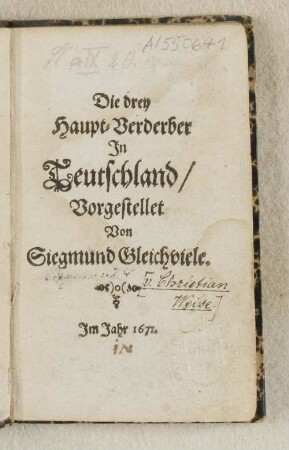 A1550641
Die drey
Haupt-Verderber
In
Teutschland/
Vorgestellet
Von
Siegmund Gleichviele.
[v. Christian
Weise.]
Im Jahr 1671.